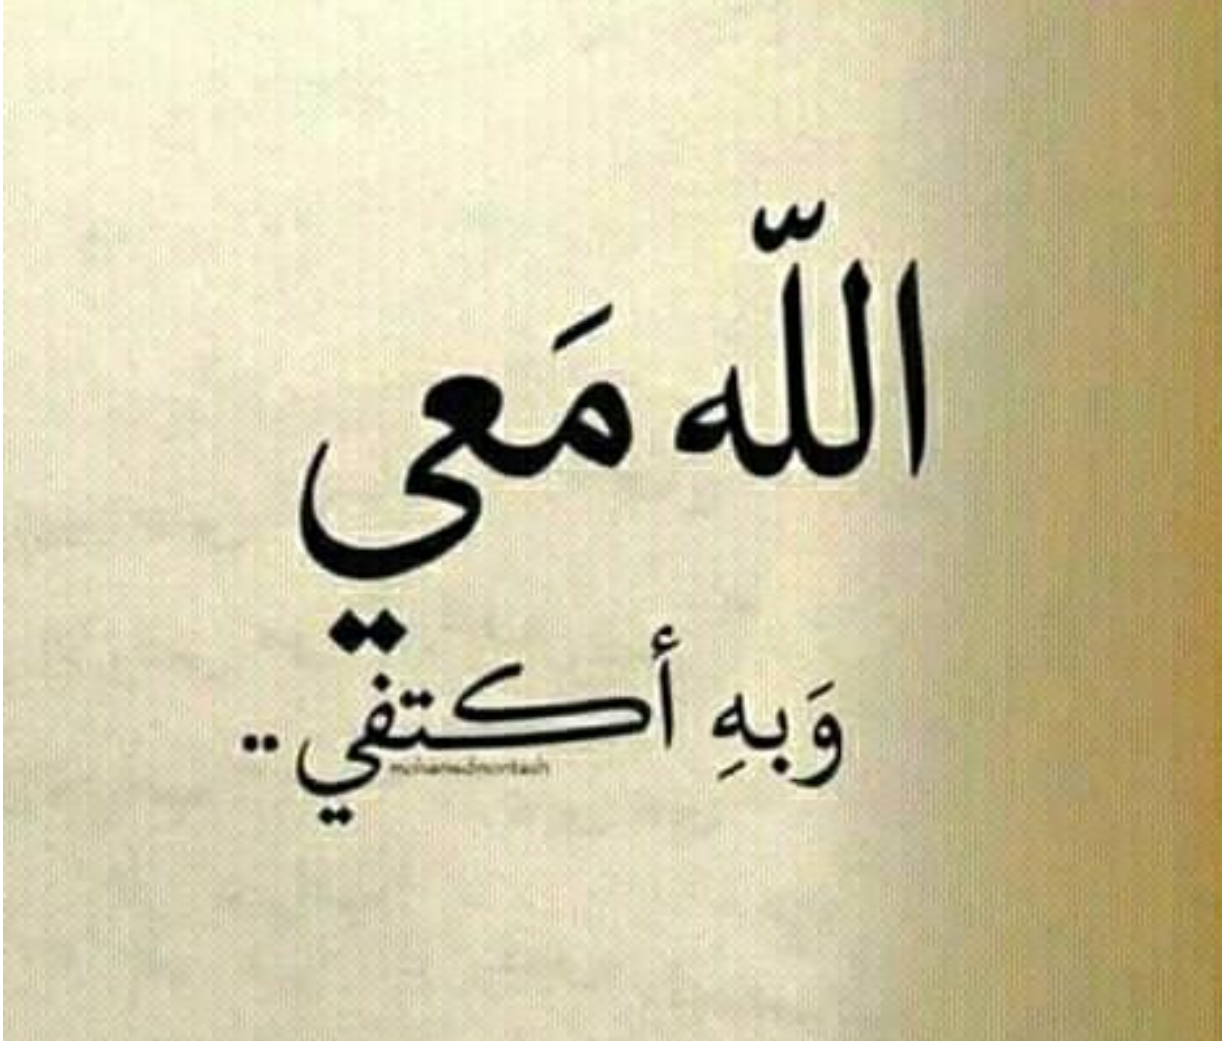 اللّه مَعي
وَبهِ أكتفي ..